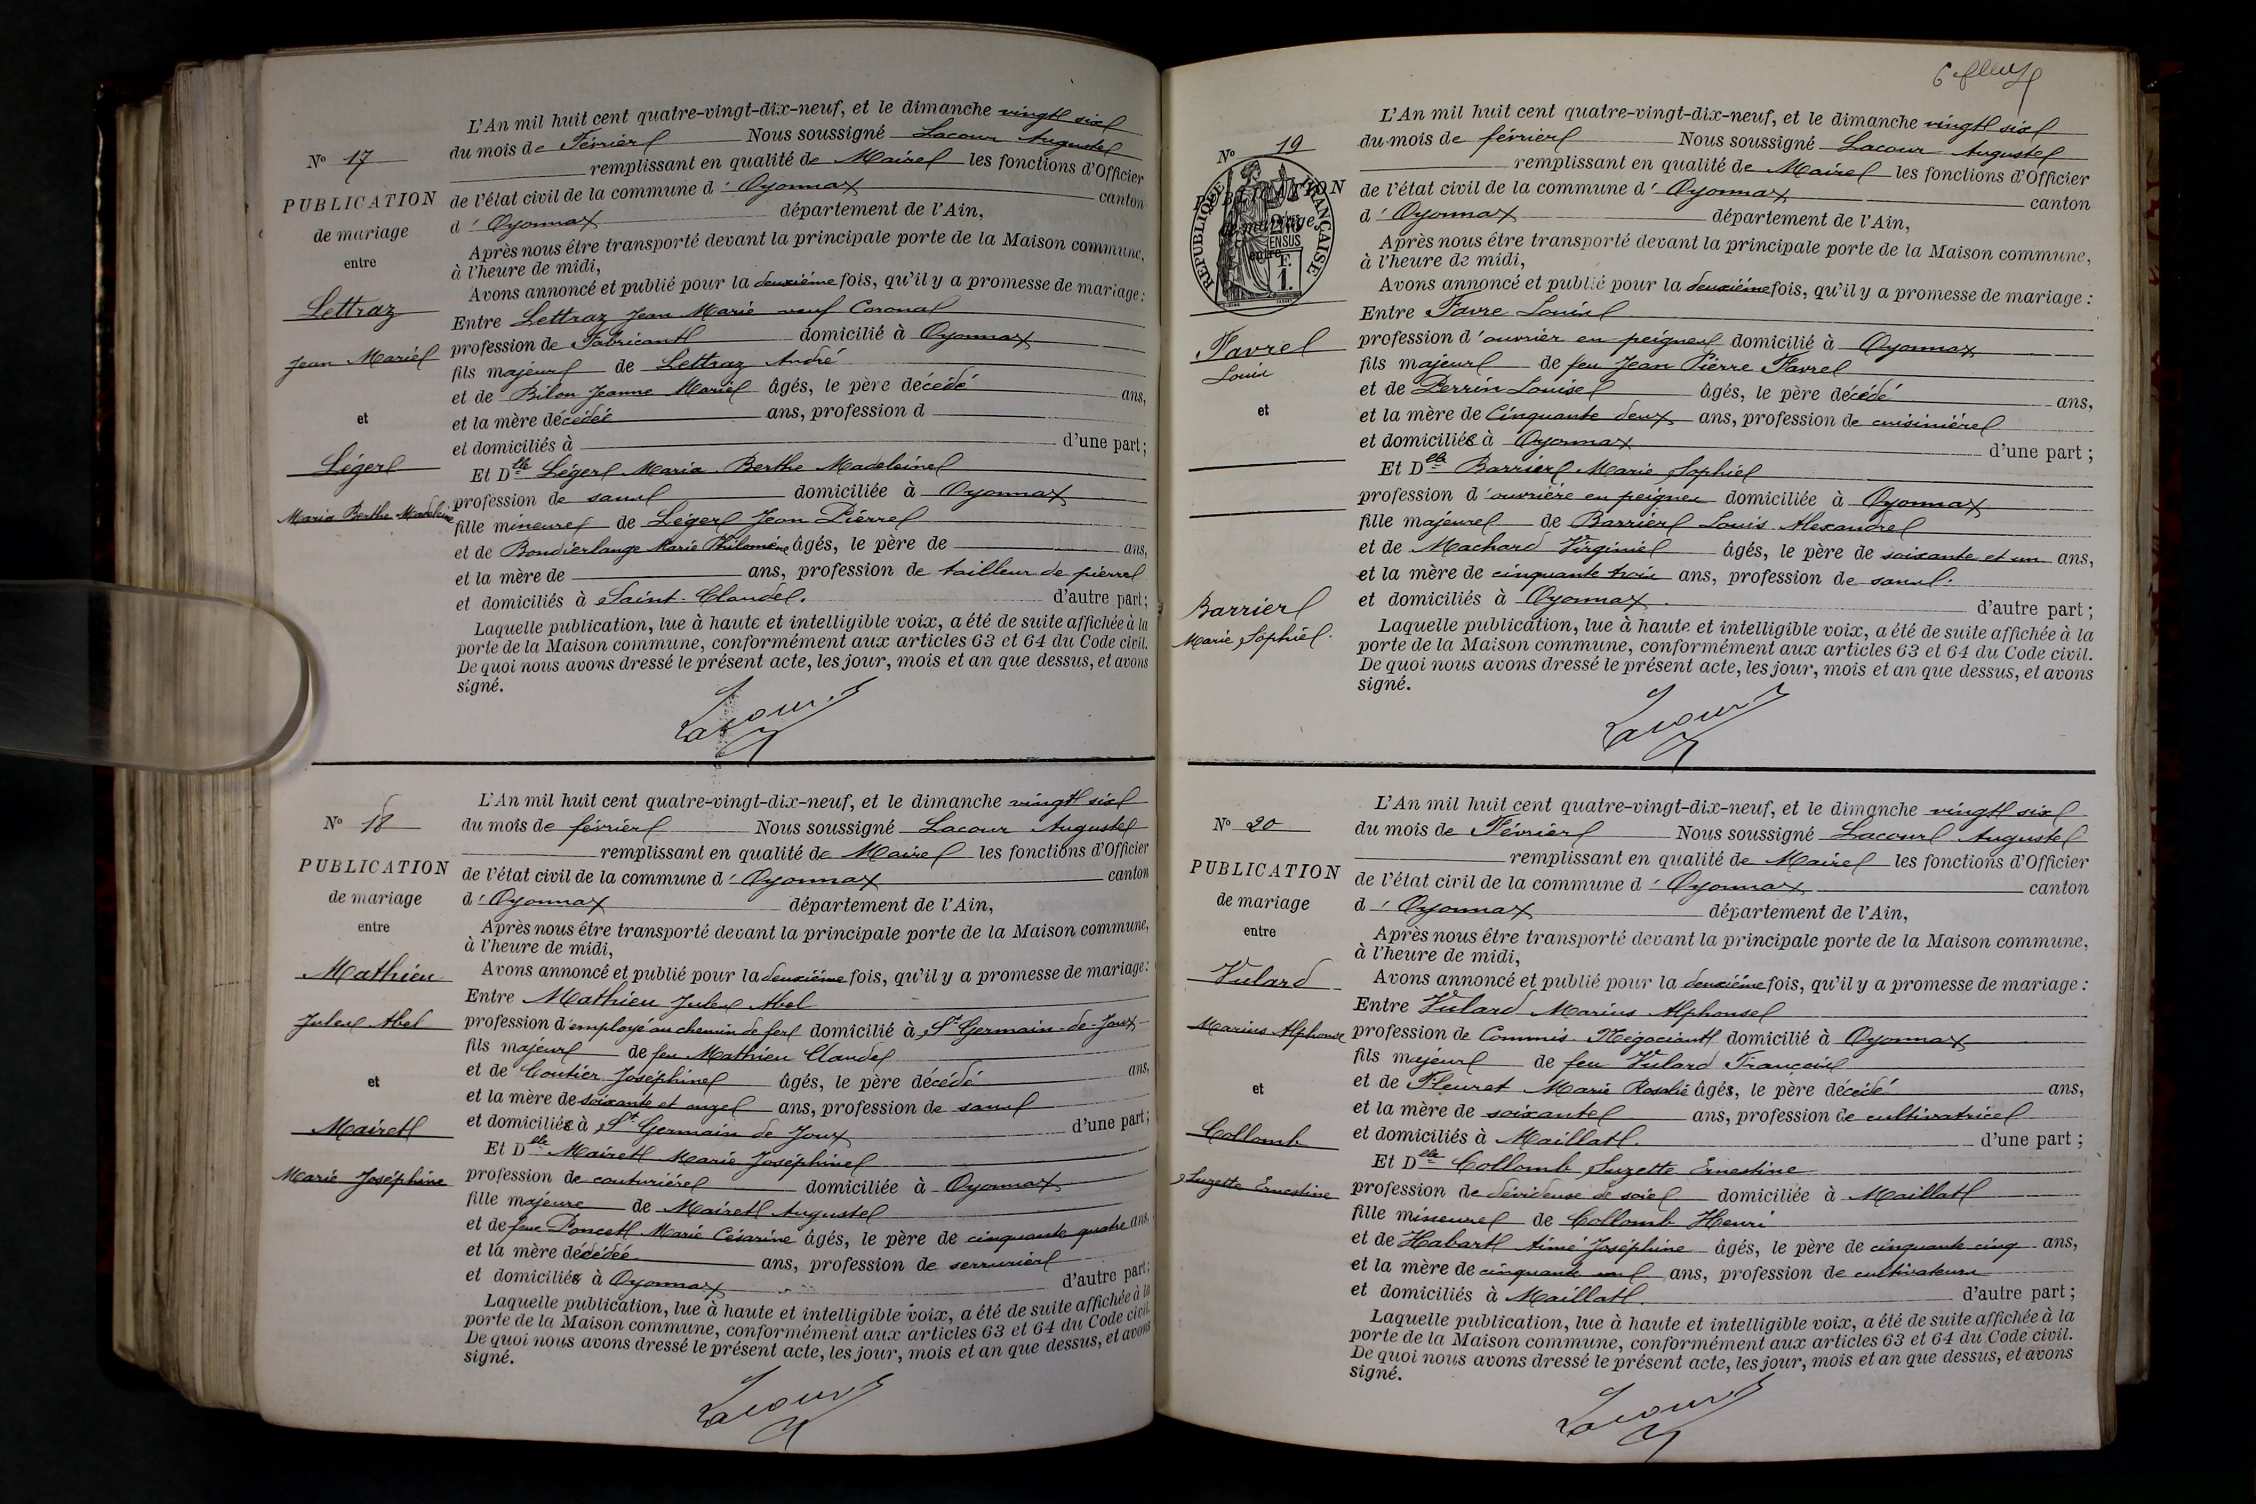 N° 17
PUBLICATION
de mariage
entre
Lettraz
Jean Marie
et
Léger
Maria Berthe Madeleine
L'An mil huit cent quatre-vingt-dix-neuf, et le dimanche vingt six
du mois de Février Nous soussigné Lacour Auguste
remplissant en qualité de Maire les fonctions d'Officier
de l'état civil de la commune d' Oyonnax canton
d' Oyonnax département de l'Ain,
Après nous être transporté devant la principale porte de la Maison commune,
à l'heure de midi,
Avons annoncé et publié pour la deuxième fois, qu'il y a promesse de mariage :
Entre Lettraz Jean Marie veuf Coronal
profession de Fabricant domicilié à Oyonnax
fils majeur de Lettraz André
et de Bilon Jeanne Marie âgés, le père décédé ans,
et la mère décédée ans, profession d
et domiciliés à d'une part ;
Et Dlle Léger Maria Berthe Madeleine
profession de sans domiciliée à Oyonnax
fille mineure de Léger Jean Pierre
et de Bondierlange Marie Philomène âgés, le père de ans,
et la mère de ans, profession de tailleur de pierre
et domiciliés à Saint-Claude. d'autre part ;
Laquelle publication, lue à haute et intelligible voix, a été de suite affichée à la
porte de la Maison commune, conformément aux articles 63 et 64 du Code civil.
De quoi nous avons dressé le présent acte, les jour, mois et an que dessus, et avons
signé.
Lacour
N° 18
PUBLICATION
de mariage
entre
Mathieu
Jules Abel
et
Mairet
Marie Joséphine
L'An mil huit cent quatre-vingt-dix-neuf, et le dimanche vingt six
du mois de février Nous soussigné Lacour Auguste
remplissant en qualité de Maire les fonctions d'Officier
de l'état civil de la commune d' Oyonnax canton
d' Oyonnax département de l'Ain,
Après nous être transporté devant la principale porte de la Maison commune,
à l'heure de midi,
Avons annoncé et publié pour la deuxième fois, qu'il y a promesse de mariage :
Entre Mathieu Jules Abel
profession d'employé au chemin de fer domicilié à St Germain-de-Joux
fils majeur de feu Mathieu Claude
et de Coutier Joséphine âgés, le père décédé ans,
et la mère de soixante et onze ans, profession de sans
et domiciliée à St Germain de Joux d'une part ;
Et Dlle Mairet Marie Joséphine
profession de couturière domiciliée à Oyonnax
fille majeure de Mairet Auguste
et de feue Poncet Marie Césarine âgés, le père de cinquante quatre ans,
et la mère décédée ans, profession de serrurier
et domiciliés à Oyonnax d'autre part ;
Laquelle publication, lue à haute et intelligible voix, a été de suite affichée à la
porte de la Maison commune, conformément aux articles 63 et 64 du Code civil.
De quoi nous avons dressé le présent acte, les jour, mois et an que dessus, et avons
signé.
Lacour
6
N° 19
PUBLICATION
de mariage
entre
RÉPUBLIQUE FRANÇAISE
F.
1.
Favre
Louis
et
Barrier
Marie Sophie.
L'An mil huit cent quatre-vingt-dix-neuf, et le dimanche vingt six
du mois de février Nous soussigné Lacour Auguste
remplissant en qualité de Maire les fonctions d'Officier
de l'état civil de la commune d' Oyonnax canton
d' Oyonnax département de l'Ain,
Après nous être transporté devant la principale porte de la Maison commune,
à l'heure de midi,
Avons annoncé et publié pour la deuxième fois, qu'il y a promesse de mariage :
Entre Favre Louis
profession d'ouvrier en peignes domicilié à Oyonnax
fils majeur de feu Jean Pierre Favre
et de Perrin Louise âgés, le père décédé ans,
et la mère de Cinquante deux ans, profession de cuisinière
et domiciliée à Oyonnax d'une part ;
Et Dlle Barrier Marie Sophie
profession d'ouvrière en peignes domiciliée à Oyonnax
fille majeure de Barrier Louis Alexandre
et de Machard Virginie âgés, le père de soixante et un ans,
et la mère de cinquante trois ans, profession de sans.
et domiciliés à Oyonnax. d'autre part ;
Laquelle publication, lue à haute et intelligible voix, a été de suite affichée à la
porte de la Maison commune, conformément aux articles 63 et 64 du Code civil.
De quoi nous avons dressé le présent acte, les jour, mois et an que dessus, et avons
signé.
Lacour
N° 20
PUBLICATION
de mariage
entre
Vulard
Marius Alphonse
et
Collomb
Suzette Ernestine
L'An mil huit cent quatre-vingt-dix-neuf, et le dimanche vingt six
du mois de Février Nous soussigné Lacour Auguste
remplissant en qualité de Maire les fonctions d'Officier
de l'état civil de la commune d' Oyonnax canton
d' Oyonnax département de l'Ain,
Après nous être transporté devant la principale porte de la Maison commune,
à l'heure de midi,
Avons annoncé et publié pour la deuxième fois, qu'il y a promesse de mariage :
Entre Vulard Marius Alphonse
profession de Commis-Négociant domicilié à Oyonnax
fils majeur de feu Vulard François
et de Fleuret Marie Rosalie âgés, le père décédé ans,
et la mère de soixante ans, profession de cultivatrice
et domiciliés à Maillat. d'une part ;
Et Dlle Collomb Suzette Ernestine
profession de dévideuse de soie domiciliée à Maillat
fille mineure de Collomb Henri
et de Habart Aimé Joséphine âgés, le père de cinquante cinq ans,
et la mère de cinquante un ans, profession de cultivateurs
et domiciliés à Maillat. d'autre part ;
Laquelle publication, lue à haute et intelligible voix, a été de suite affichée à la
porte de la Maison commune, conformément aux articles 63 et 64 du Code civil.
De quoi nous avons dressé le présent acte, les jour, mois et an que dessus, et avons
signé.
Lacour